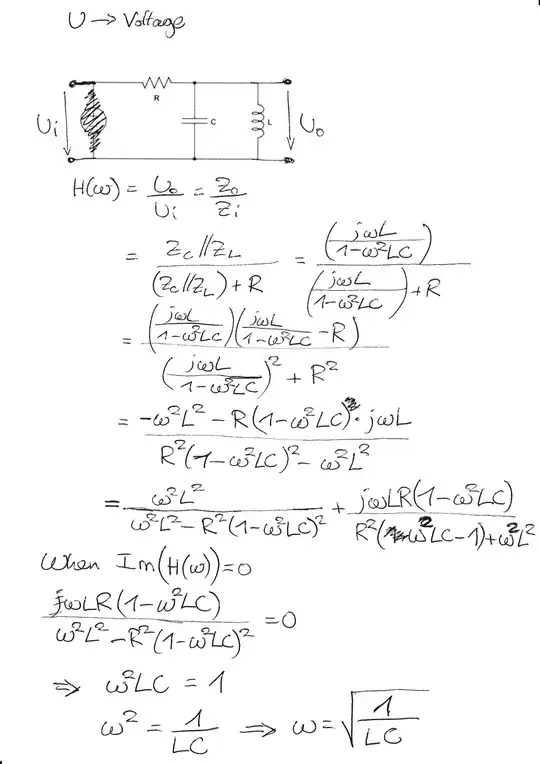 U → Voltage
R
C
L
Ui
Uo
H(ω) = Uo/Ui = Zo/Zi
= Zc//ZL / (Zc//ZL) + R = (jωL / 1-ω²LC) / (jωL / 1-ω²LC) + R
= (jωL / 1-ω²LC)(jωL / 1-ω²LC - R) / (jωL / 1-ω²LC)² + R²
= -ω²L² - R(1-ω²LC)·jωL / R²(1-ω²LC)² - ω²L²
= ω²L² / ω²L² - R²(1-ω²LC)² + jωLR(1-ω²LC) / R²(ω²LC-1)+ω²L²
When Im(H(ω))=0
jωLR(1-ω²LC) / ω²L² - R²(1-ω²LC)² = 0
⇒ ω²LC = 1
ω² = 1/LC ⇒ ω = √(1/LC)